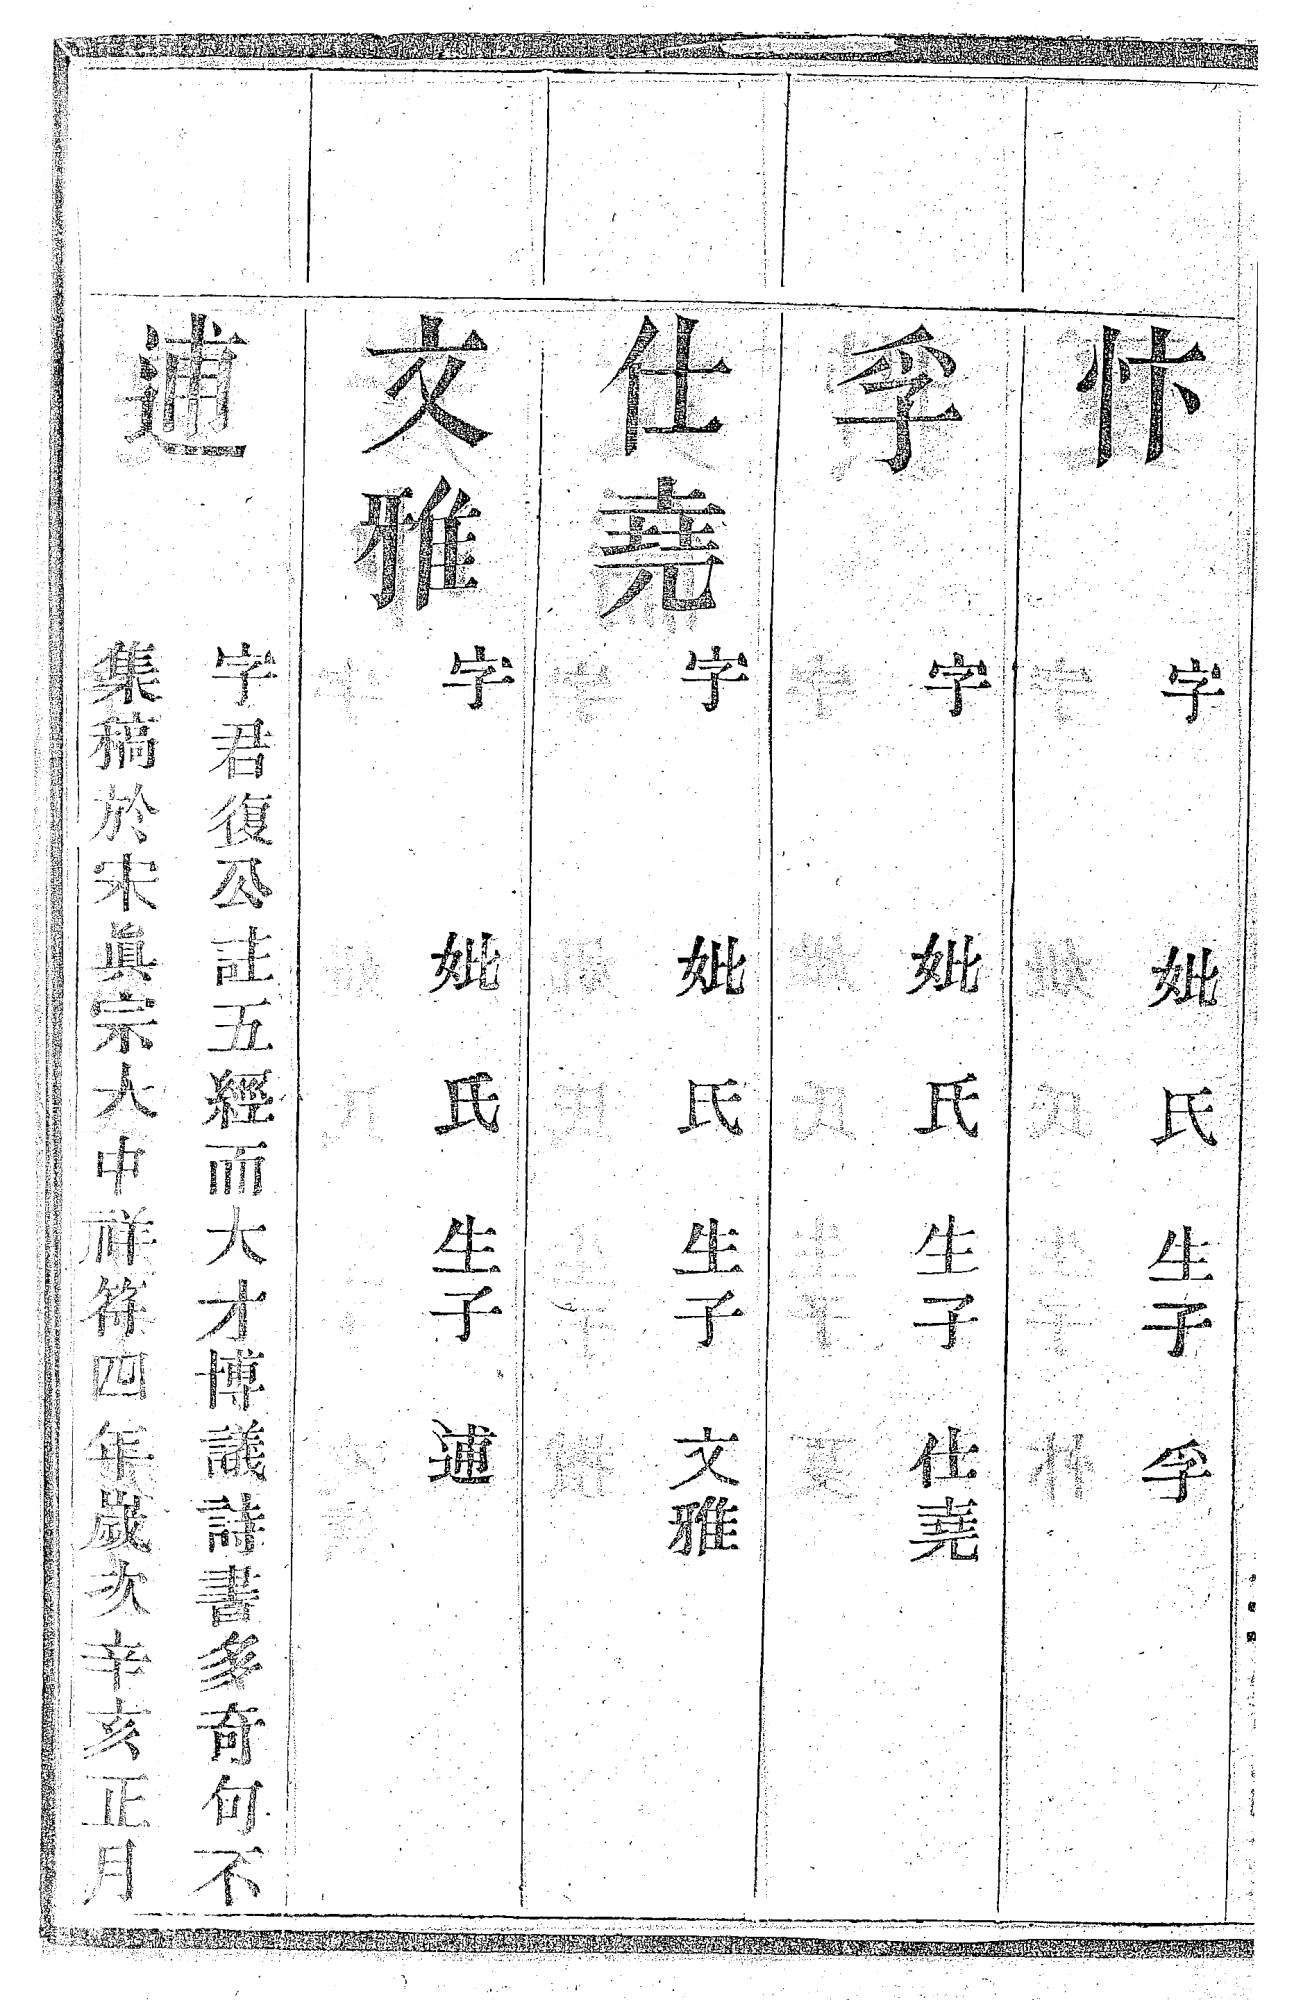 忭
字 妣 氏 生子 孚
孚
字 妣 氏 生子 仕堯
仕堯
字 妣 氏 生子 文雅
文雅
字 妣 氏 生子 逋
逋
字君復公註五經而大才博議詩書多奇句不
集稿於宋眞宗大中祥符四年歲次辛亥正月